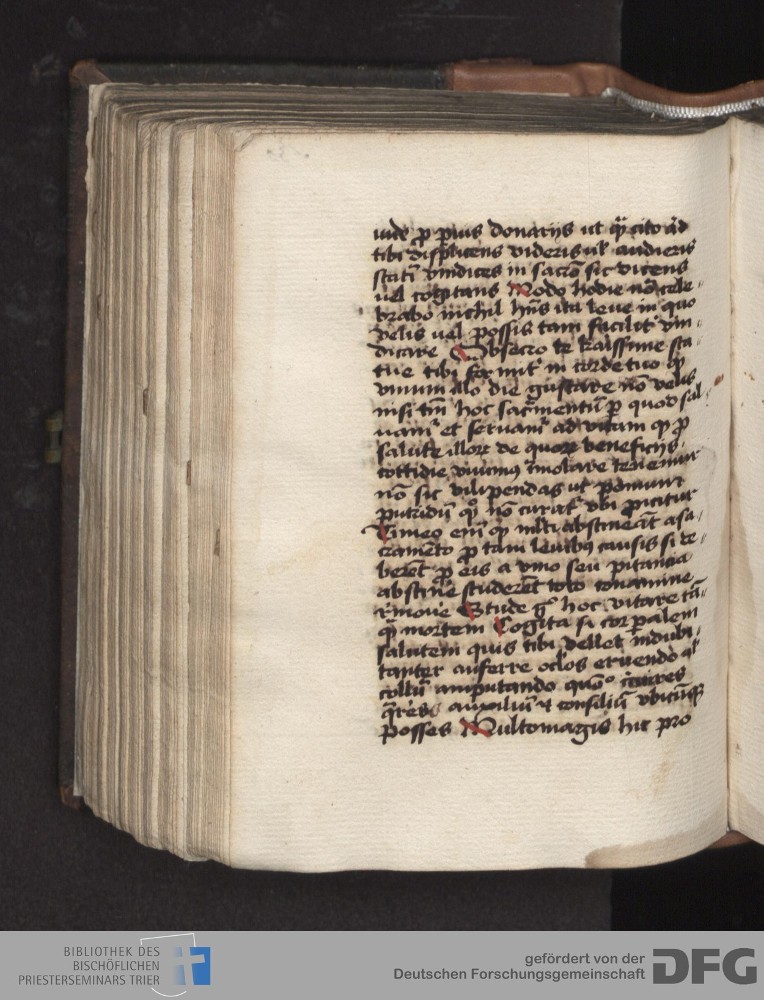 iude ꝓ ꝑuis donarijs ut qͣ cito ad
tibi displicens videris ul audieris
statī vindices in sacrō sic dicens
uel cogitans Modo hodie nō cele
brabo nichil hūs ita leue in quo
velis uel possis tam facilit vin
dicare Obsecro te kaissime sta
tue tibi firmit in corde tuo ꝙ
vinum illo die gustare nō velis
nisi tm̄ hoc sacͣmentū ꝑ quod sal
uamͥ et seruamͥ ad vitam ꝙ ꝓ
salute illoꝝ de quoꝝ beneficijs
cottidie viuimꝰ īmolare tenemur
nō sic vilipendas ut pomum
putridū qͦ nō curat vbi ꝓicitur
Timeo em̄ ꝙ mlti abstineāt a sa
cramēto ꝓ tam leuibꝫ causis si de
beret ꝓ eis a vino seu pitancia
abstinē studerēt toto conamine
rͤmoue Stude gͦ hoc vitare tā
qͣ mortem Cogita si corꝑalem
salutem quis tibi vellet indubi
tanter auferre oclos eruendo al
collū amputando quōͦ curres
qͣreres auxiliū et consiliū vbicūqꝫ
posses Multomagis hic pro
BIBLIOTHEK DES
BISCHÖFLICHEN
PRIESTERSEMINARS TRIER
gefördert von der
Deutschen Forschungsgemeinschaft
DFG